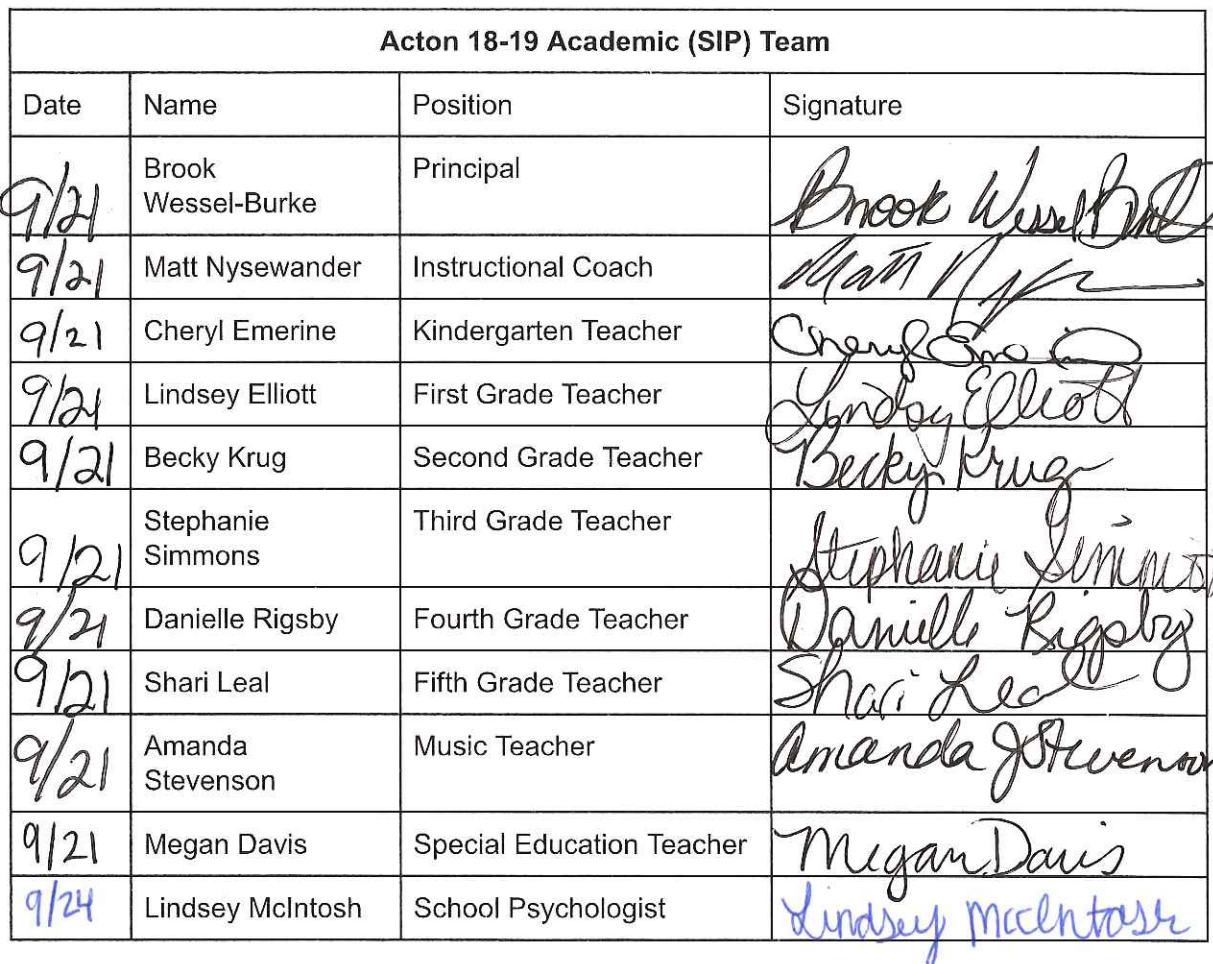 Acton 18-19 Academic (SIP) Team
Date Name Position Signature
9/21 Brook Wessel-Burke Principal Brook Wessel Burke
9/21 Matt Nysewander Instructional Coach Matt
9/21 Cheryl Emerine Kindergarten Teacher Cheryl
9/21 Lindsey Elliott First Grade Teacher Lindsey Elliott
9/21 Becky Krug Second Grade Teacher Becky Krug
9/21 Stephanie Simmons Third Grade Teacher Stephanie Simmons
9/21 Danielle Rigsby Fourth Grade Teacher Danielle Rigsby
9/21 Shari Leal Fifth Grade Teacher Shari Leal
9/21 Amanda Stevenson Music Teacher Amanda J Stevenson
9/21 Megan Davis Special Education Teacher Megan Davis
9/24 Lindsey McIntosh School Psychologist Lindsey McIntosh